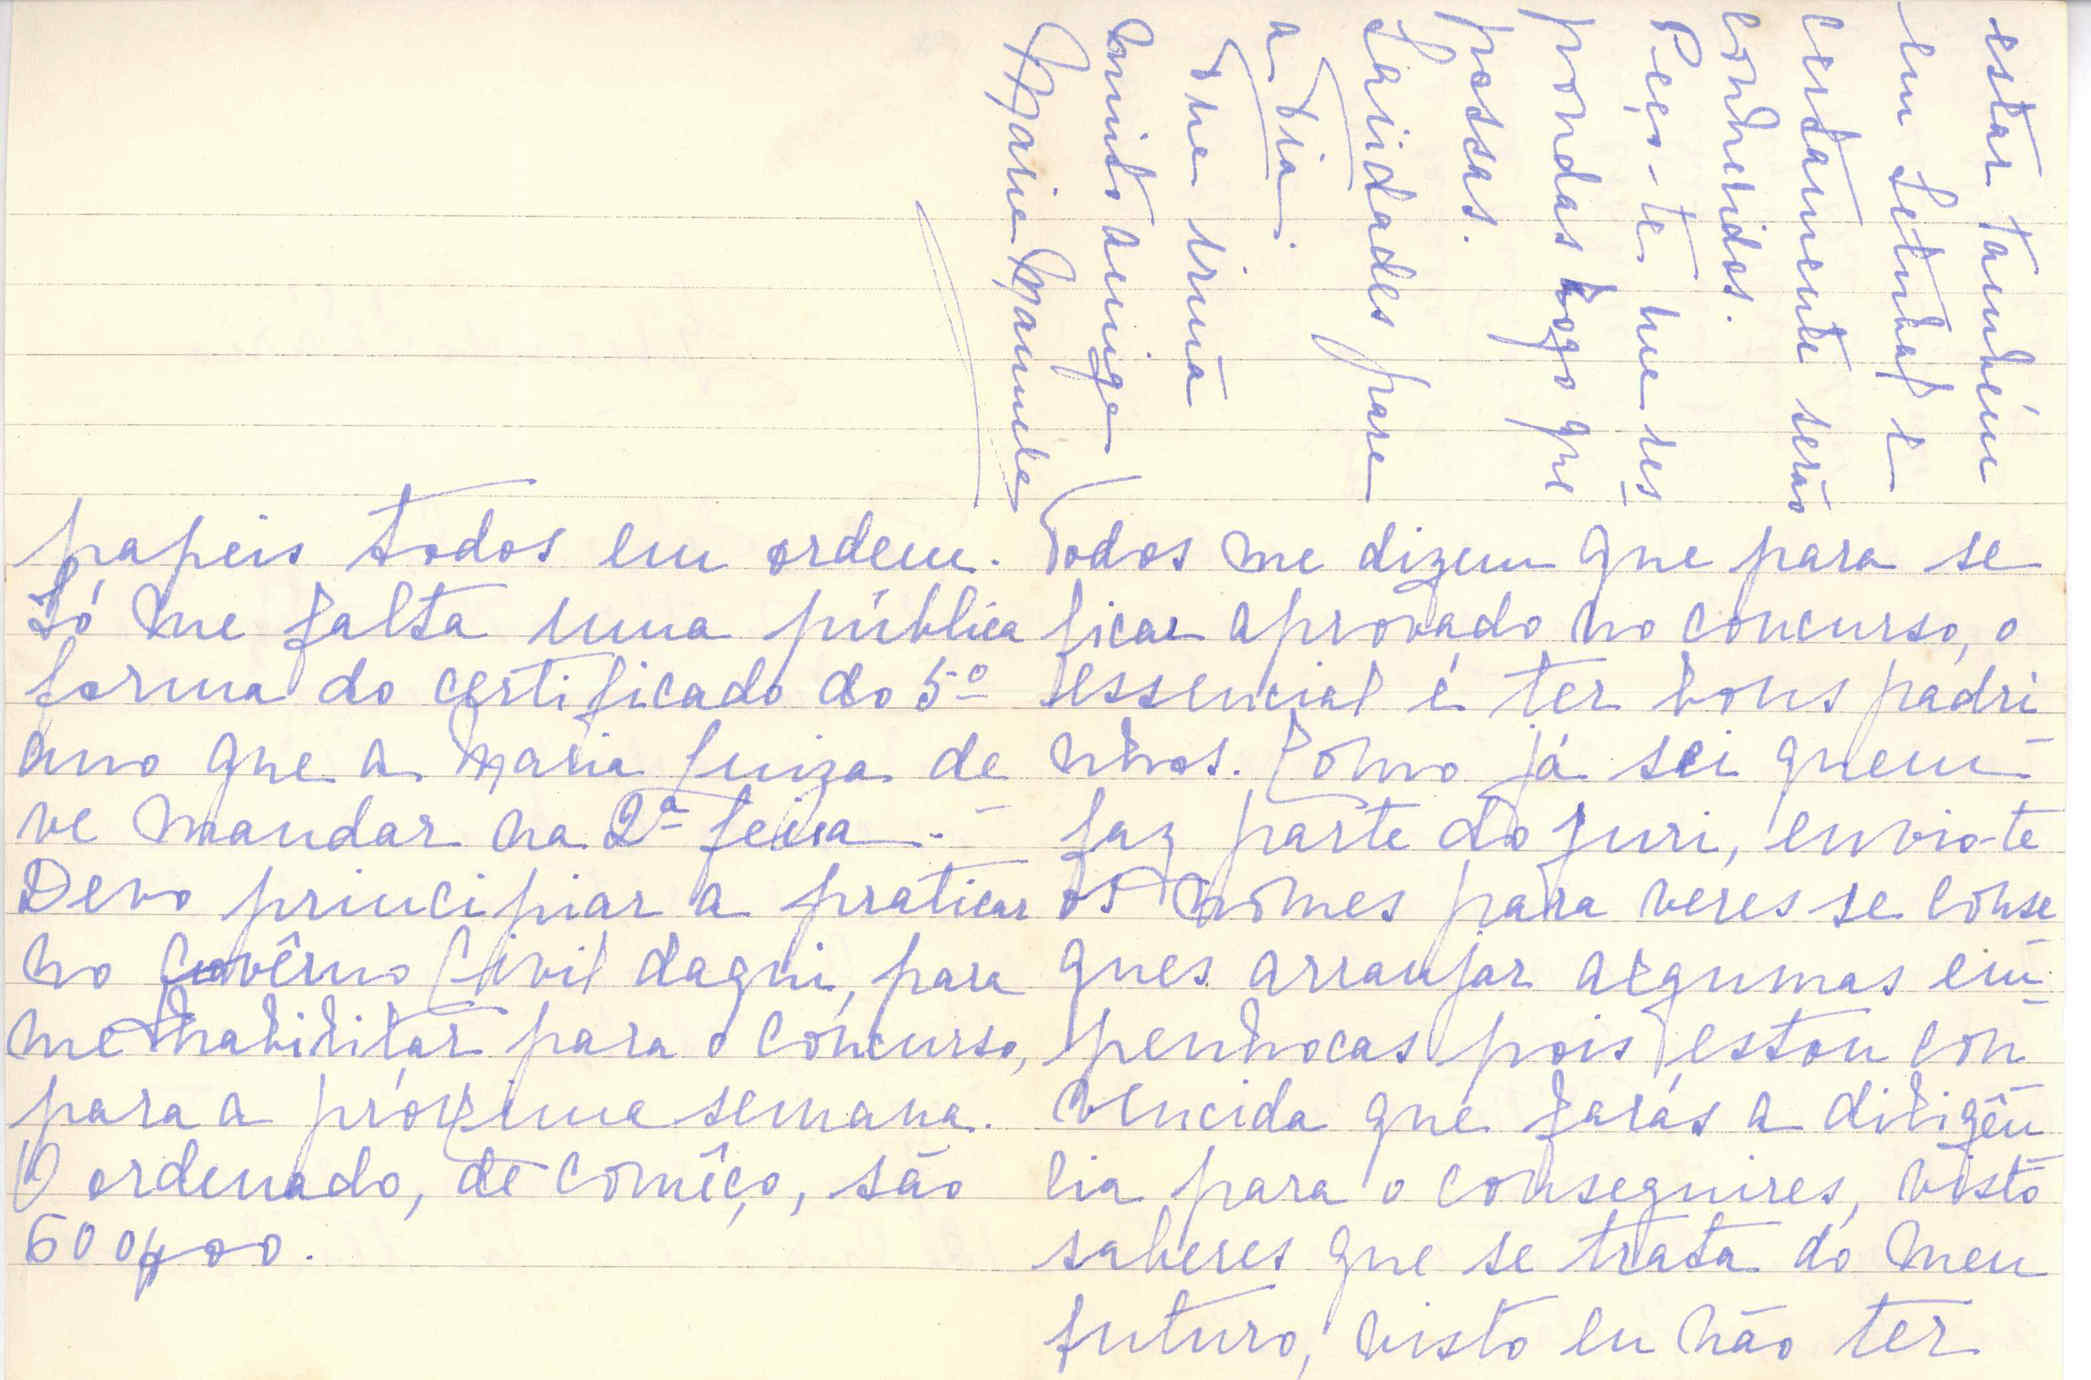 papeis todos em ordem.
Só me falta uma pública
forma do certificado do 5º
ano que a Maria Luiza de
ve mandar na 2ª feira.-
Devo principiar a praticar
no Govêrno Civil daqui, para
me habilitar para o concurso,
para a próxima semana.
O ordenado, de comêço, são
600$00.
Todos me dizem que para se
ficar aprovado no concurso, o
essencial é ter bons padri
nhos. Como já sei quem
faz parte do juri, envio-te
os nomes para veres se conse
gues arranjar algumas em-
penhocas pois estou con
vencida que farás a diligên
cia para o conseguires, visto
saberes que se trata do meu
futuro, visto eu não ter
estar também
em Setubal e
certamente serão
conhecidos.
Peço-te me res
pondas logo que
possas.
Saüdades para
a tia.
Tua irmã
muito amiga
Maria Manuela